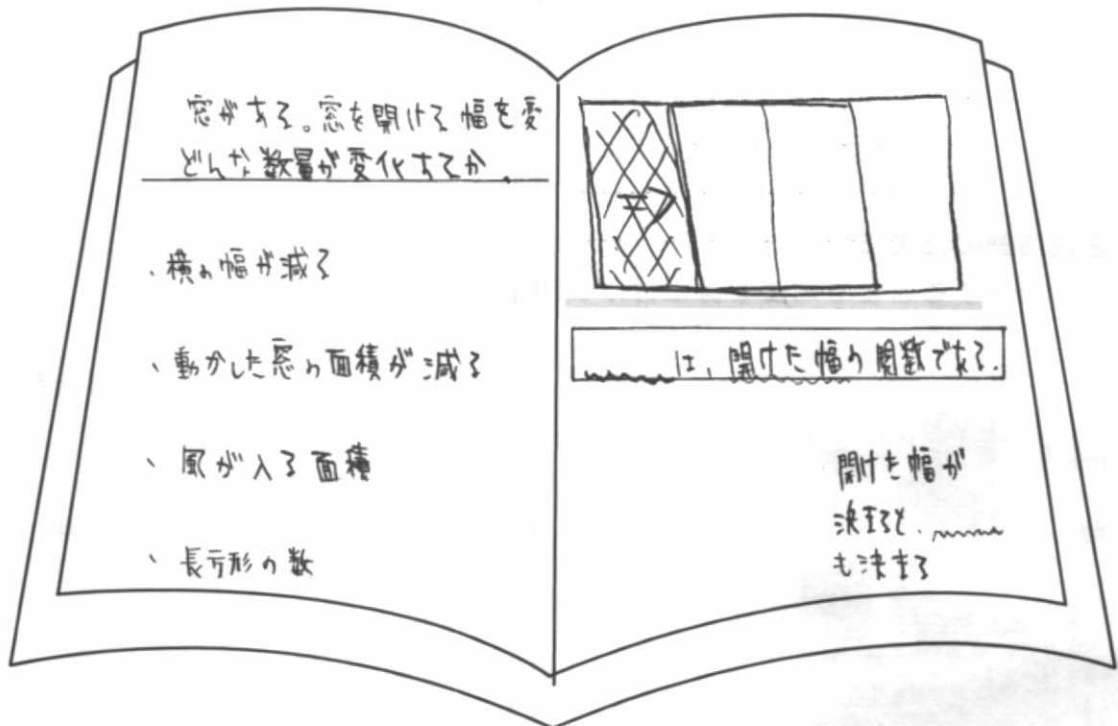 窓がある。窓を開ける幅を変
どんな数量が変化するか。
、横の幅が減る
、動かした窓の面積が減る
、風が入る面積
、長方形の数
は、開けた幅の関数である.
開けた幅が
決まると、
も決まる